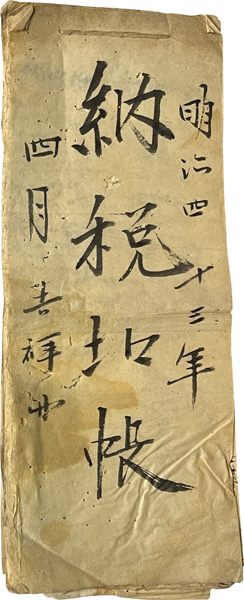 明治四十三年
納税扣帳
四月吉祥日